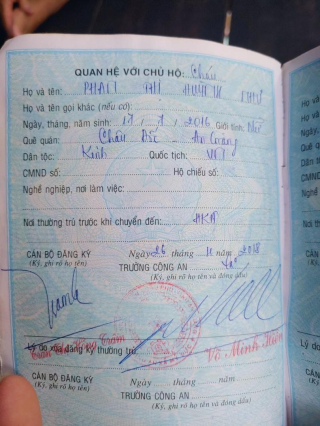 QUAN HỆ VỚI CHỦ HỘ: Cháu
Họ và tên: PHAN THỊ HUỲNH NHƯ
Họ và tên gọi khác (nếu có):
Ngày, tháng, năm sinh: 17 / 7 / 2016 Giới tính: Nữ
Quê quán: Châu Đốc - An Giang
Dân tộc: Kinh Quốc tịch: VN
CMND số: Hộ chiếu số:
Nghề nghiệp, nơi làm việc:
Nơi thường trú trước khi chuyển đến:
Ngày 26 tháng 11 năm 2018
CÁN BỘ ĐĂNG KÝ TRƯỞNG CÔNG AN
(Ký, ghi rõ họ tên) (Ký, ghi rõ họ tên và đóng dấu)
Lý do xóa đăng ký thường trú:
Võ Minh
Ngày tháng năm
CÁN BỘ ĐĂNG KÝ TRƯỞNG CÔNG AN
(Ký, ghi rõ họ tên) (Ký, ghi rõ họ tên và đóng dấu)
Lý do
CÁN
(Ký,